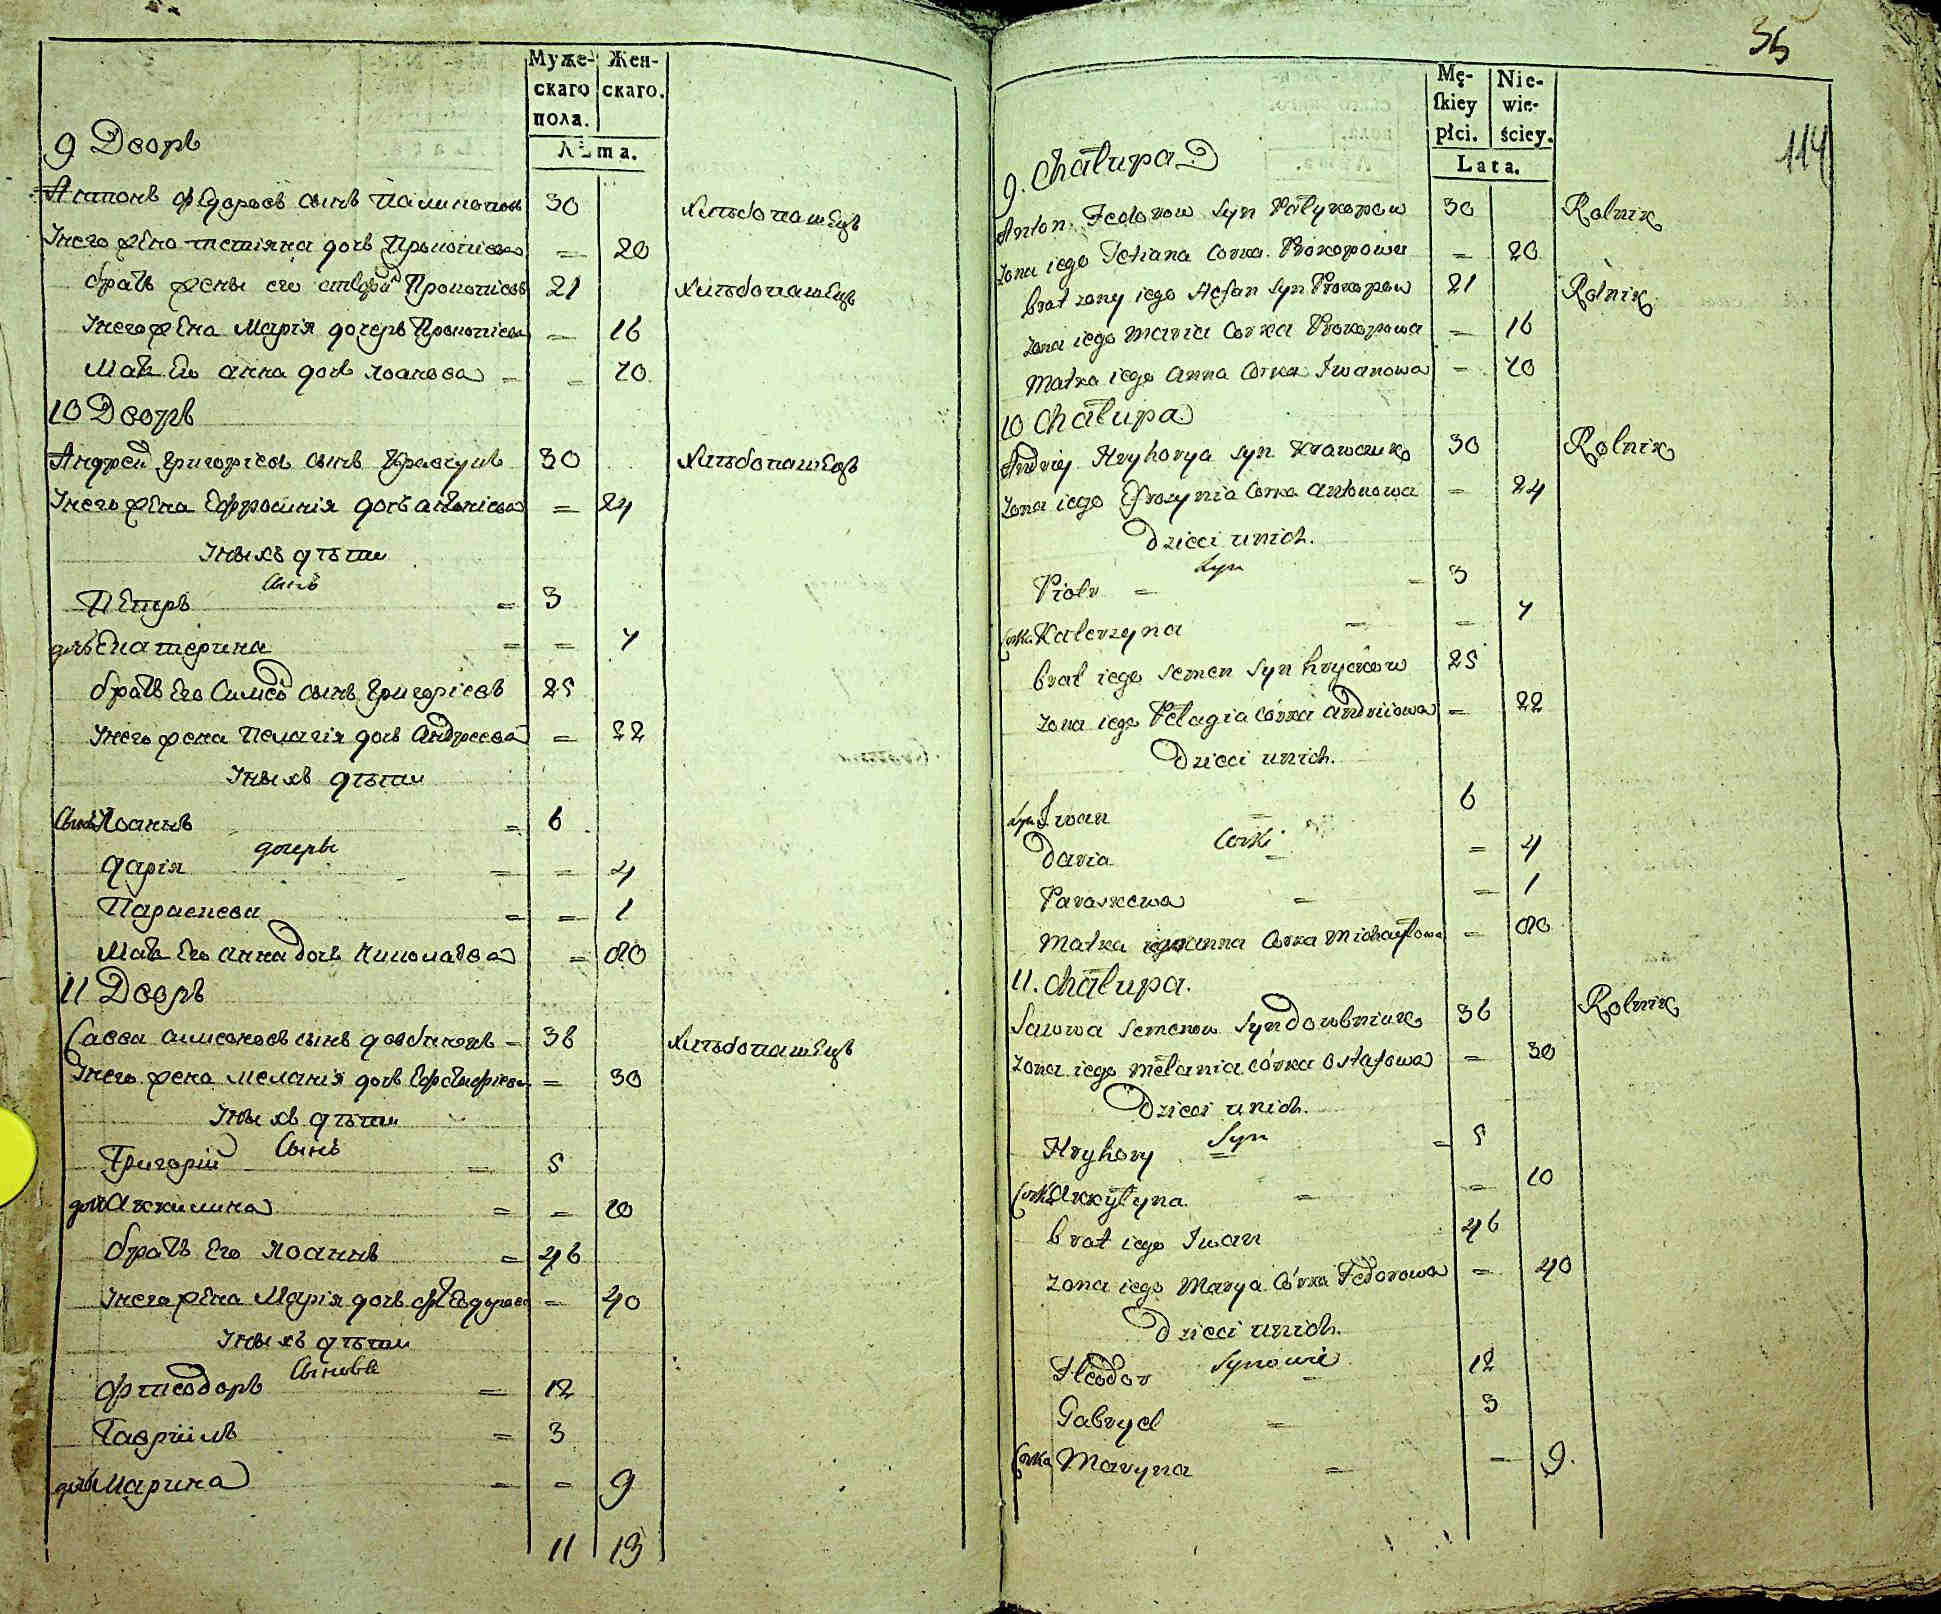 Муже-
скаго
пола.
Жен-
скаго.
Лѣта.
9 Дворъ
Антонъ Федоровъ сынъ 30 Хлѣбопашецъ
Унего жена татіяна дочь Прокопіева = 20
братъ жены его Прокопіевъ 21 Хлѣбопашецъ
Унего жена Марія дочерь Прокопіева = 16
Мать Его анна дочь Іоанова = = 70
10 Дворъ
Андрей Григоріевъ сынъ Кравчукъ 30 Хлѣбопашецъ
Унего жена Ефросинія дочь антоніева = 24
Унихъ дѣти
Сынъ
Петръ = 3
дочь Екатерина = = 7
братъ Его Симеонъ сынъ Григоріевъ 25
Унего жена Пелагія дочь Андреева = 22
Унихъ дѣти
Сынъ Іоаннъ = 6
дочери
дарія = = 4
Параскева = = 1
Мать Его анна дочь = 80
11 Дворъ
Савва симеоновъ сынъ довбнюкъ = 36 Хлѣбопашецъ
Унего жена меланія дочь = 30
Унихъ дѣти
Сынъ
Григорій = 5
дочь Акилина = = 10
братъ Его Іоаннъ = 46
Унего жена Марія дочь = 40
Унихъ дѣти
Сыновья
Фтеодоръ = 12
Гавріилъ = 3
дочь Марина = = 9
11 13
35
114
Mę-
ſkiey
płci.
Nie-
wie-
ściey.
Lata.
9. Chałupa
Anton Fedorow Syn 30 Rolnik
Zona iego Tetiana Corka Prokopowa = 20
brat zony iego Stefan Syn Prokopow 21 Rolnik
zona iego maria Corka Prokopowa = 16
Matka iego anna Corka Iwanowa = 70
10 Chałupa
Andriy Hryhorya Syn Krawczuk 30 Rolnik
Zona iego Efrozynia Corka antonowa = 24
Dzieci unich.
Syn
Piotr = = 3
Corka Katerzyna = = 7
brat iego Semen Syn hryckow 25
zona iego Pelagia Córka andriiowa = 22
Dzieci unich.
Syn Iwan = 6
Corki
Daria = = 4
Paraskewa = = 1
Matka iego anna Corka Michayłowa = 80
11. Chałupa.
Sawwa Semenow Syn dowbniuk 36 Rolnik
Zona iego Melania córka Ostafowa = 30
Dzieci unich.
Syn
Hryhory = = 5
Corka Akkylyna = = 10
brat iego Iwan 46
zona iego Marya Córka Fedorowa = 40
Dzieci unich.
Synowie
Fteodor = 12
Gabryel = 3
Corka Maryna = = 9.